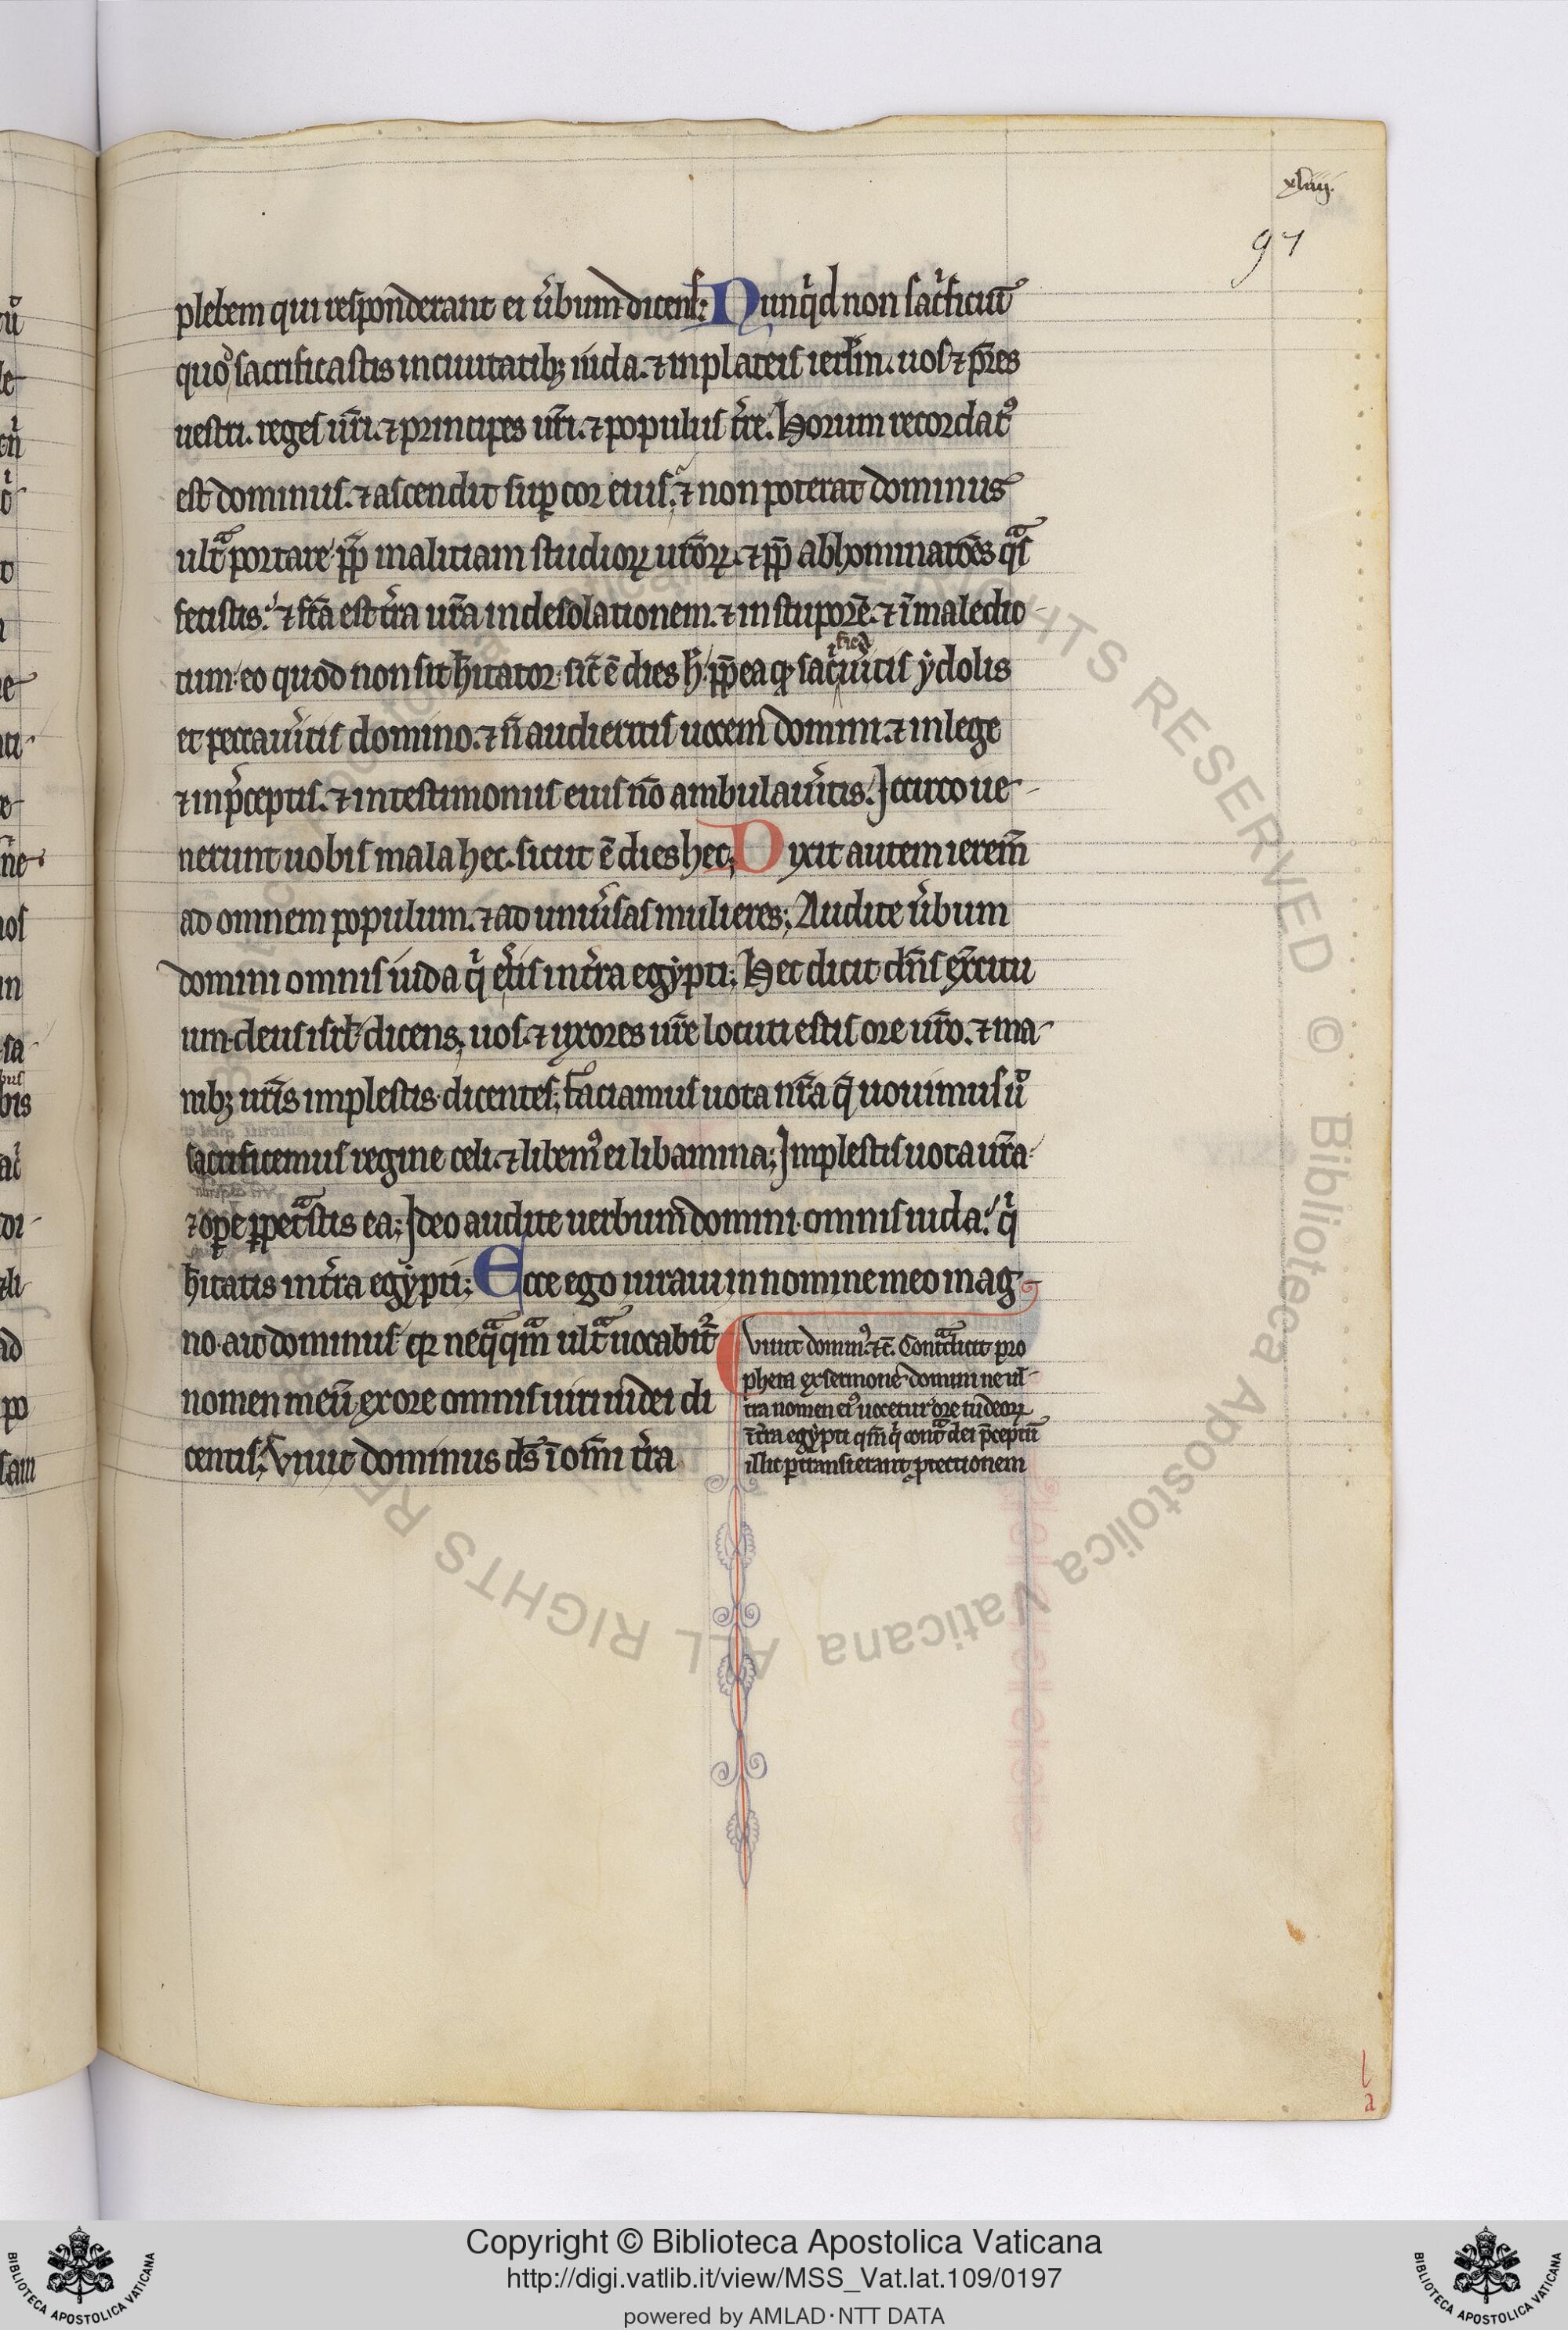 xliiij.
97
plebem qui responderant ei ũbum dicens; Nunqͥd non sacͥficiũ
quoͩ sacrificastis in ciuitatibꝫ iuda. ⁊ in plateis ierl̃m. uos ⁊ pr̃es
uestri. reges ur̃i. ⁊ principes ur̃i. ⁊ populus tr̃e. Horum recordatꝰ
est dominus. ⁊ ascendit suꝑ cor eius; ⁊ non poterat dominus
ultͣ portare pp̃ malitiam studioꝝ ur̃oꝝ. ⁊ pp̃ abhominatões qͣs
fecistis. ⁊ fc̃a est tr̃a ur̃a in desolationem. ⁊ in stuporẽ. ⁊ ĩ maledic
tum eo quod non sit h̃itator. sic̃ ẽ dies h̃. pp̃ea qꝫ sac̃ficaũitis ydolis
et peccaũitis domino. ⁊ ñ audieritis uocem domini. ⁊ in lege
⁊ in p̃ceptis. ⁊ in testimoniis eius nõ ambulaũitis. Iccirco ue-
nerunt uobis mala hec. sicut ẽ dies hec; Dixit autem ierem̃
ad omnem populum. ⁊ ad uniũsas mulieres; Audite ũbum
domini omnis iuda qͥ etͥs in tr̃a egypti; Hec dicit dñs ex̃citu
um deus isrl̃ dicens; uos. ⁊ uxores ur̃e locuti estis ore ur̃o. ⁊ ma-
nibꝫ ur̃is implestis dicentes; faciamus uota nr̃a q̃ uouimus uͦ
sacrificemus regine celi. ⁊ libemꝰ ei libamina; Implestis uota ur̃a
⁊ oꝑe ꝑpetͣstis ea; Ideo audite uerbum domini omnis iuda. qͥ
h̃itatis in tr̃a egypti; Ecce ego iuraui in nomine meo mag
no. ait dominus qꝫ neqͣqͣm ultͣ uocabit̃
nomen meũ ex ore omnis uiri iudei di
centis; viuit dominus ds̃ ĩ om̃i tr̃a
viuit dominꝰ. ⁊c̃. Contͣdicit pro
pheta ex sermone domini ne ul-
tra nomen eiꝰ uocetur ore iudeoꝝ
ĩ tr̃a egypti qm̃ qͥ contͣ dei p̃ceptũ
illic ꝑtransierant ꝓtectionem
l
a
Copyright © Biblioteca Apostolica Vaticana
http://digi.vatlib.it/view/MSS_Vat.lat.109/0197
powered by AMLAD·NTT DATA
BIBLIOTECA APOSTOLICA VATICANA
BIBLIOTECA APOSTOLICA VATICANA